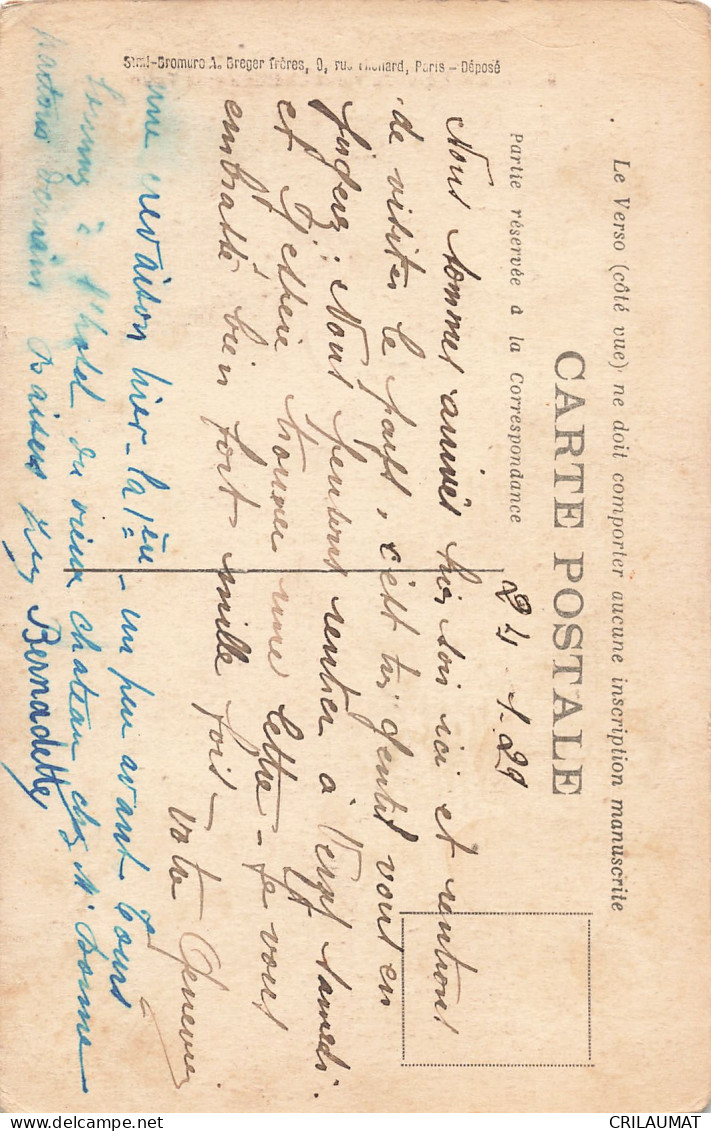 Le Verso (côté vue) ne doit comporter aucune inscription manuscrite
CARTE POSTALE
Partie réservée à la Correspondance
24-1-29
Nous sommes arrivés hier soir ici et rentront
de visiter le pays, c'est très gentil vous en
jugerez. Nous pensons rentrer à samedi.
et j'espère trouver une lettre - je vous
embrasse bien fort mille fois - votre
une crevaison hier - la 1ère - un peu avant Tours
à l'hotel du vieux chateau chez Mr Bonne
partons demain Baisers Bernadette
Simi-Bromure A. Breger frères, 9, rue Thénard, Paris - Déposé
CRILAUMAT